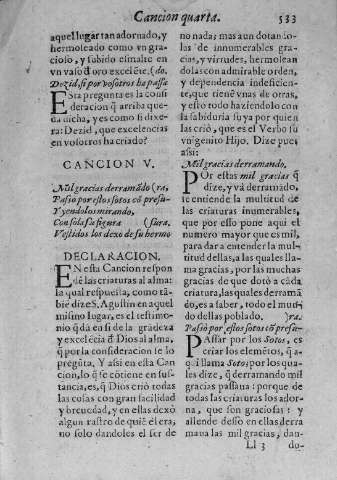 Cancion quarta. 533
aquel lugar tan adornado, y
hermoseado como vn gra-
cioso, y subido esmalte en
vn vaso d̄ oro excelēte. (do.
Dezid, si por vosotros ha passa
Esta pregunta es la consi-
deracion q̄ arriba que-
da dicha, y es como si dixe-
ra: Dezid, que excelencias
en vosotros ha criado?
CANCION V.
Mil gracias derramādo (ra,
Passò por estos sotos cō presu-
Y yendolos mirando,
Con sola su figura (sura.
Vestidos los dexo de su hermo
DECLARACION.
EN esta Cancion respon
dē las criaturas al alma:
la qual respuesta, como tā-
bié dize S. Agustin en aquel
mismo lugar, es el testimo-
nio q̄ dā en si de la grādeza
y excelēcia d̄ Dios al alma,
q̄ por la consideracion se lo
pregūta. Y assi en esta Can
cion, lo q̄ se cōtiene en sus-
tancia, es, q̄ Dios criò todas
las cosas con gran facilidad
y breuedad, y en ellas dexò
algun rastro de quiē el era,
no solo dandoles el ser de
no nada; mas aun dotando-
las de innumerables gra-
cias, y virtudes, hermosean
dolas con admirable orden,
y dependencia indeficien-
te, que tienē vnas de otras,
y esto todo haziendolo con
la sabiduria suya por quien
las criò, que es el Verbo su
vnigenito Hijo. Dize pues
assi:
Mil gracias derramando.
POr estas mil gracias q̄
dize, y vā derramādo,
se entiende la multitud de
las criaturas inumerables,
que por esso pone aqui el
numero mayor que es mil,
para dar a entender la mul-
titud dellas, a las quales lla-
ma gracias, por las muchas
gracias de que dotò a cada
criatura, las quales derramā-
do, es a saber, todo el mun-
do dellas poblado. )ra.
Passò por estos sotos cō presu-
PAssar por los Sotos, es
criar los elemētos, q̄ a-
quí llama Sotos; por los qua-
les dize, q̄ derramando mil
gracias passaua: porque de
todas las criaturas los ador-
na, que son graciosas: y
allende desso en ellas derra
maua las mil gracias, dan-
Ll 3 do-